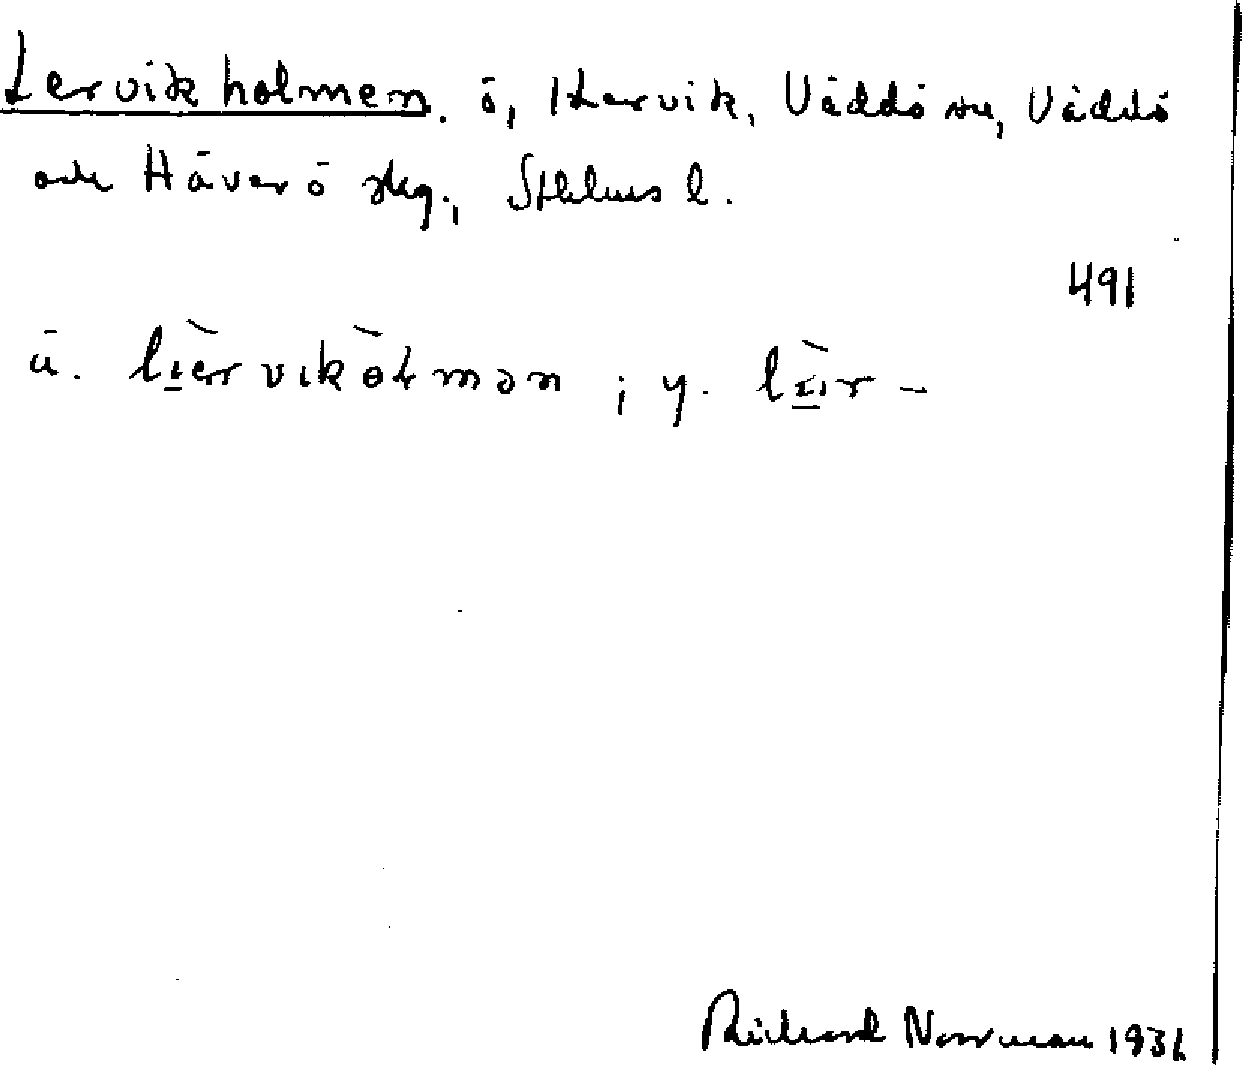 Lervikholmen. ö, Hervik, Väddö sn, Väddö
och Häverö skg., Sthlms l.
491
ä. ; y.
Richard Norrman 1931